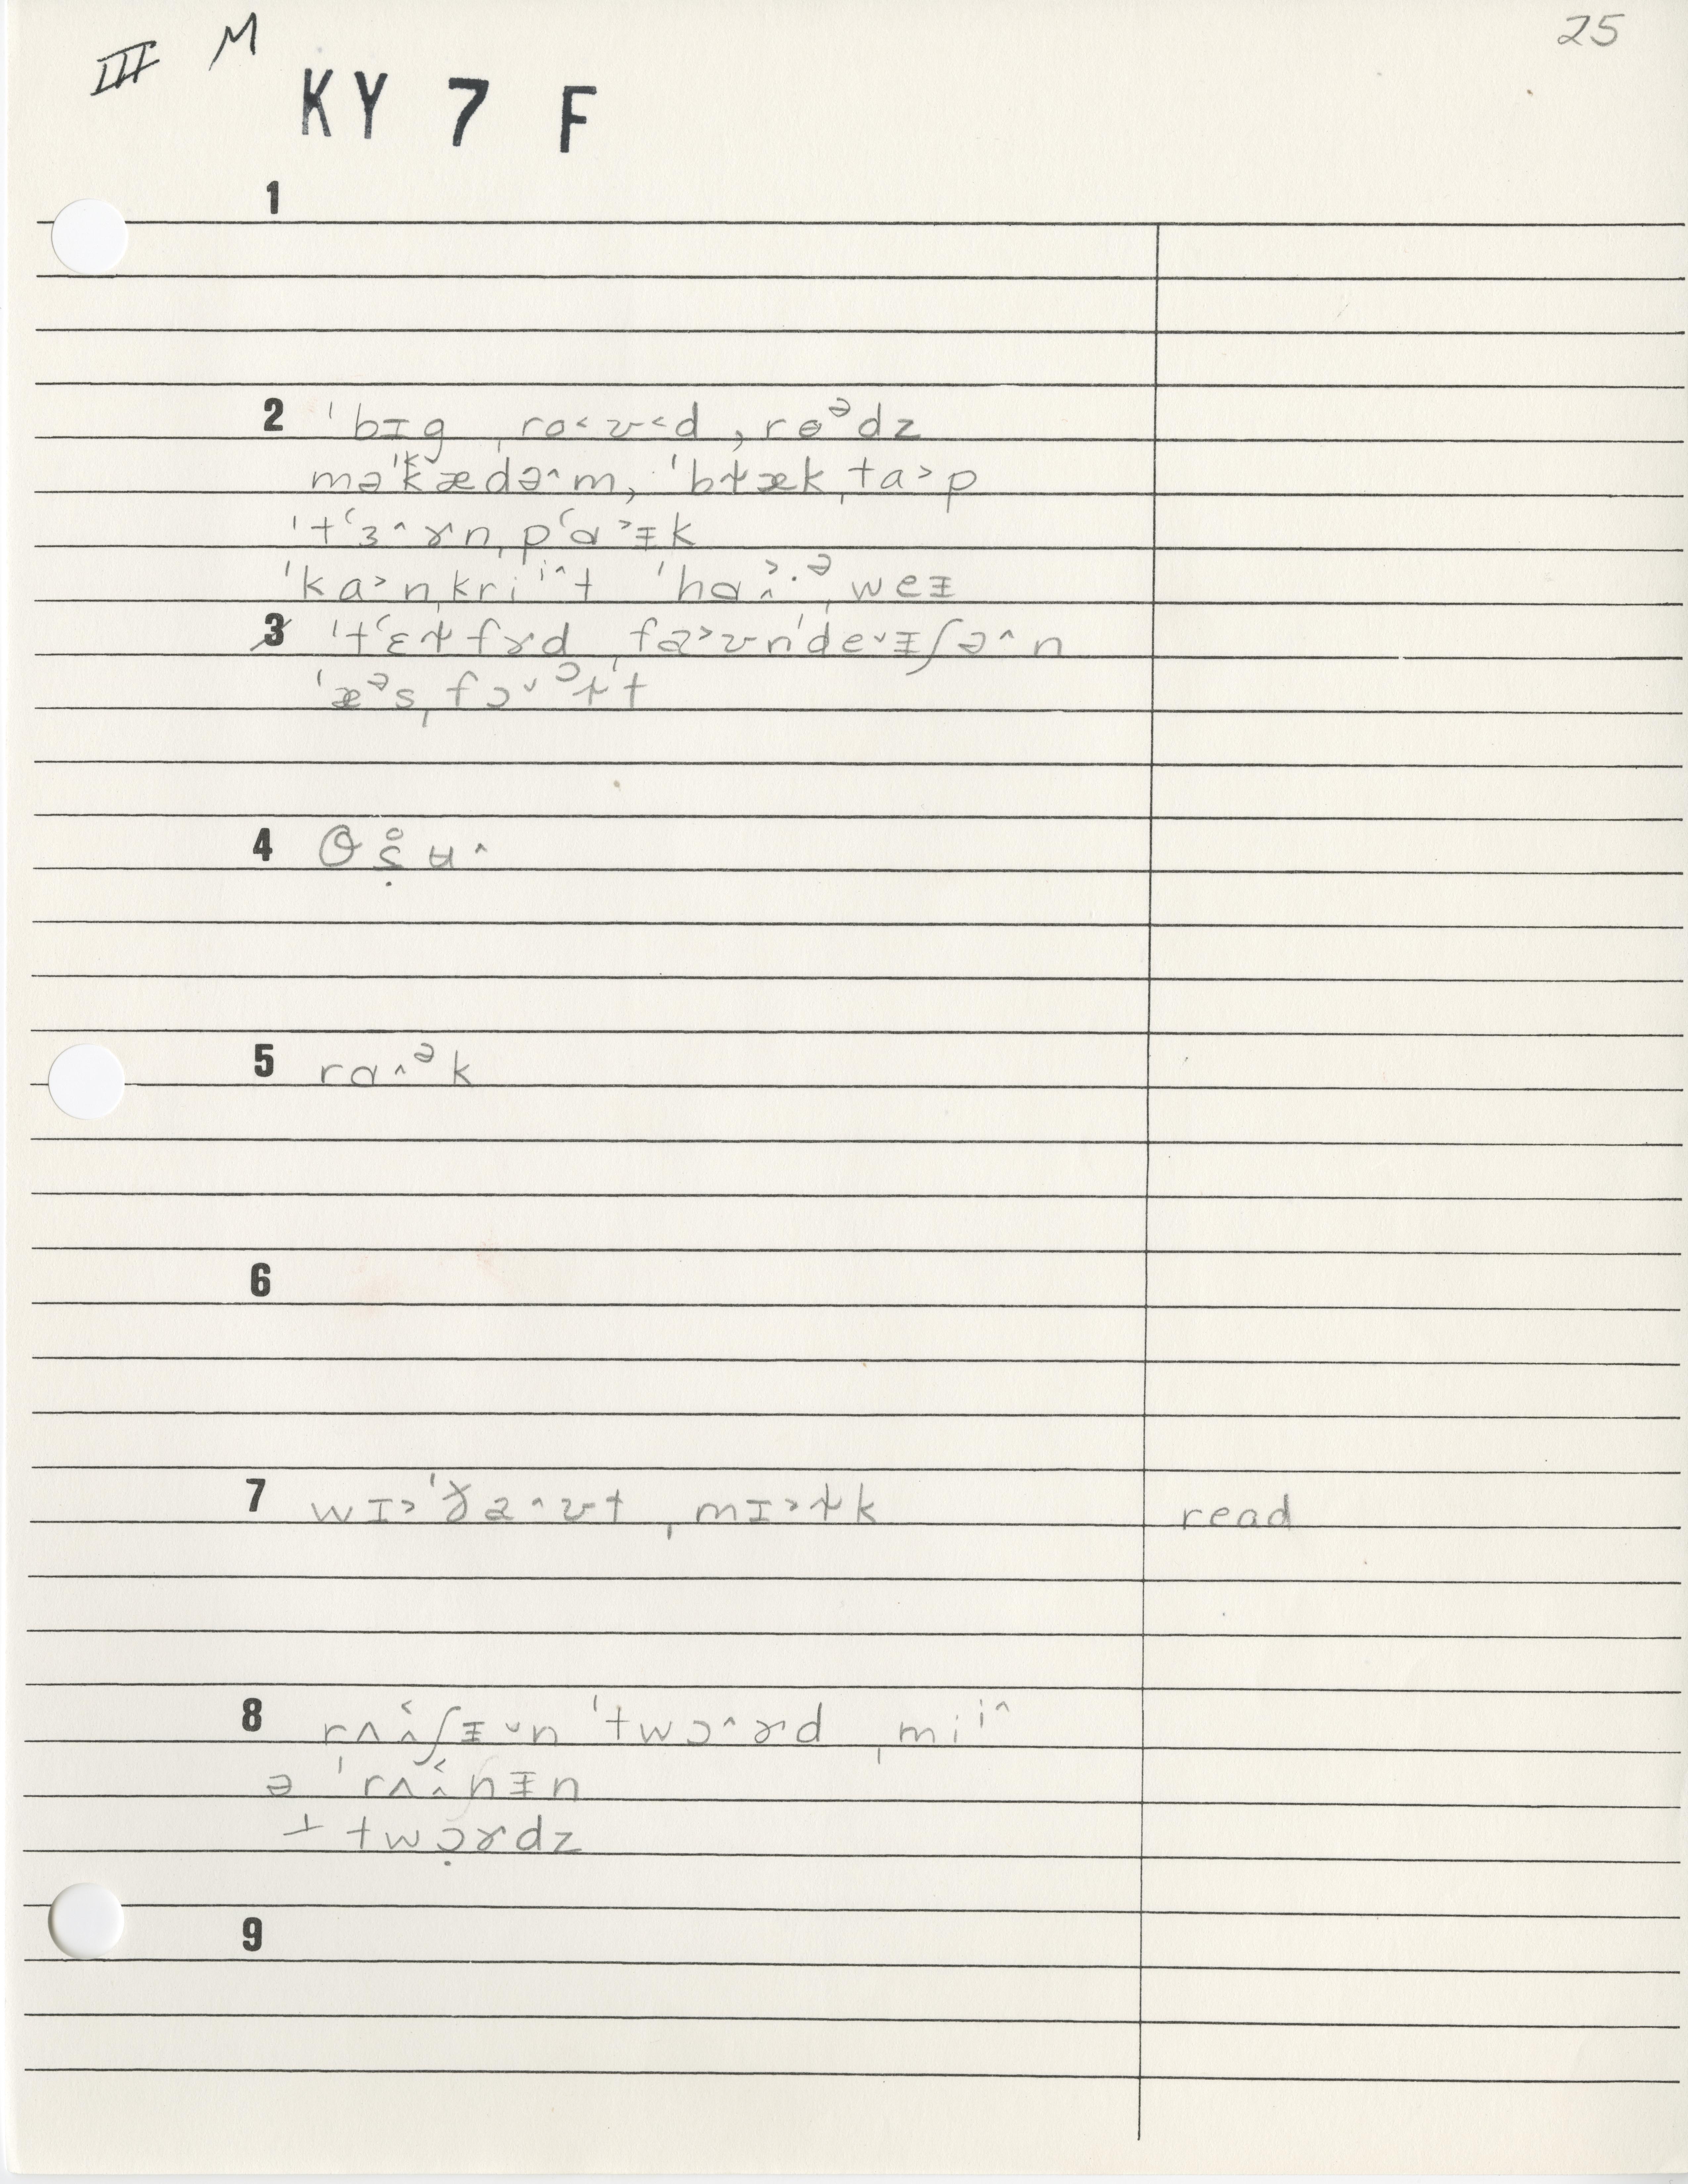 III M 25
KY 7 F
1
2 ˈbɪg ˌro˂ʊ˂d, rɵᵊdz
məˈkædə˄m, ˈbɫækˌta˃p
ˈtʻɜ˄ɤnˌpʻɑ˃ᵻk
ˈka˃nˌkriⁱ˄t ˈhɑ˄˃·ᵊˌweᵻ
3 ˈtʻɛɫfɤd ˌfa˃ʊnˈde˅ᵻʃə˄n
ˈæᵊsˌfɔ˅ᵓɫˈt
4 θɹ̣̊ʉ˄
5 rɑ˄ᵊk
6
7 wɪ˃ˈɤ̵a˄ʊt ˌmɪ˃ɫk read
8 rʌ˄˂ʃᵻ˅n ˈtwɔ˄ɤd ˌmiⁱ˄
ə ˈrʌ˄˂nᵻn
⊥ twɔ̣ɤdz
9